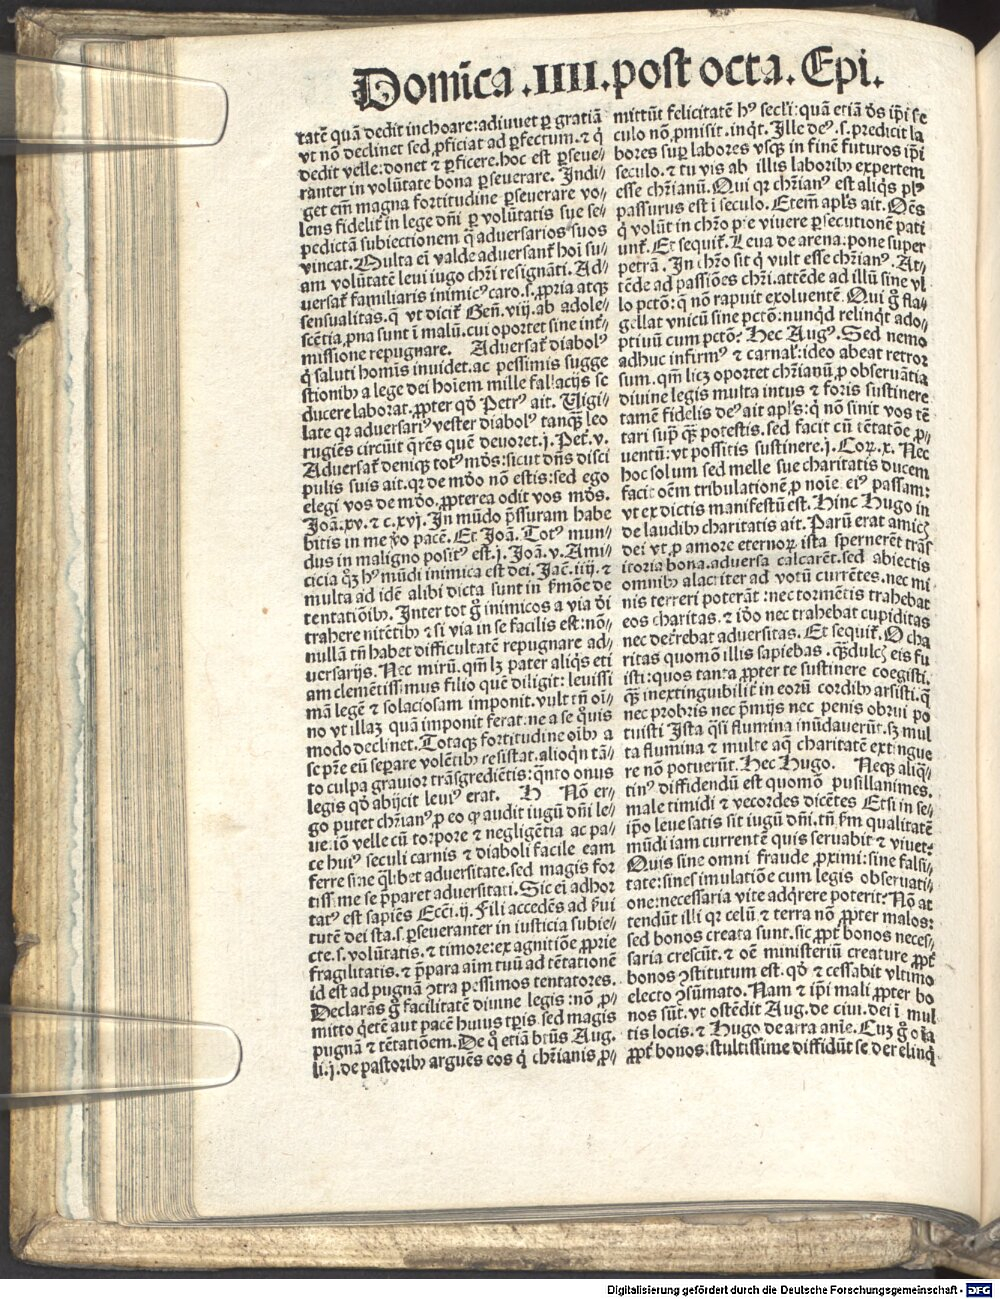 Domĩca .IIII. post octa. Epi.
tatẽ quã dedit inchoare: adiuuet ꝑ gratiã
vt nõ declinet sed ꝓficiat ad ꝑfectum. ⁊ q̇
dedit velle: donet ⁊ ꝑficere. hoc est ꝑseue⸗
ranter in volũtate bona ꝑseuerare. Indi⸗
get em̃ magna fortitudine ꝑseuerare vo⸗
lens fidelit᷑ in lege dñi ꝑ volũtatis sue se⸗
pedictã subiectionem q̇ aduersarios suos
vincat. Multa ei valde aduersant᷑ hoi su⸗
am volũtatẽ leui iugo chr̃i resignãti. Ad⸗
uersat᷑ familiaris inimicꝰ caro .s. ꝓpria atqꝫ
sensualitas. q̃ vt dicit᷑ Geñ. viij. ab adole⸗
scẽtia ꝓna sunt ĩ malũ. cui oportet sine int᷑⸗
missione repugnare. Aduersat᷑ diabolꝰ
q̇ saluti homĩs inuidet. ac pessimis sugge
stionibꝫ a lege dei hoiem mille fallacijs se
ducere laborat. ꝓpter qđ Petrꝰ ait. Uigi⸗
late qꝛ aduersariꝰ vester diabolꝰ tanqꝫ leo
rugiẽs circũit q̃rẽs quẽ deuoret. j. Pet᷑. v.
Aduersat᷑ deniqꝫ totꝰ mũdꝰ: sicut dñs disci
pulis suis ait. qꝛ de mũdo nõ estis: sed ego
elegi vos de mũdo, ꝓpterea odit vos mũdꝰ.
Joã. xv. ⁊ c. xvj. In mũdo p̃ssuram habe
bitis in me ꝟo pacẽ. Et Joã. Totꝰ mun⸗
dus in maligno positꝰ est. j. Joã. v. Ami⸗
cicia qꝫ hꝰ mũdi inimica est dei. Jac̃. iiij. ⁊
multa ad idẽ alibi dicta sunt in s̃mõe de
tentatiõibꝫ. Inter tot g̊ inimicos a via dĩ
trahere nitẽtibꝫ ⁊ si via in se facilis est: nõ⸗
nullã tñ habet difficultatẽ repugnare ad⸗
uersarijs. Nec mirũ. qm̃ lꝫ pater aliq̇s eti
am clemẽtissimus filio quẽ diligit: leuissi
mã legẽ ⁊ solaciosam imponit. vult tñ oĩ⸗
no vt illaꝫ quã imponit ferat. ne a se q̊uis
modo declinet. Totaqꝫ fortitudine oibꝫ a
se pr̃e eũ separe volẽtibꝫ resistat. alioq̇n tã⸗
to culpa grauior trãsgrediẽtis: q̃nto onus
legis qđ abijcit leuiꝰ erat. H Nõ er⸗
go putet chr̃ianꝰ ꝑ eo ꝙ audit iugũ dñi le⸗
ue. iõ velle cũ torpore ⁊ negligẽtia ac pa⸗
ce huiꝰ seculi carnis ⁊ diaboli facile eam
ferre sine q̃libet aduersitate. sed magis for
tissime se p̃paret aduersitati. Sic ei adhor
tatꝰ est sapiẽs Ecc̃i. ij. Fili accedẽs ad s̃ui
tutẽ dei sta .s. ꝑseueranter in iusticia subie⸗
cte .s. volũtatis. ⁊ timore: ex agnitiõe ꝓprie
fragilitatis. ⁊ p̃para aĩm tuũ ad tẽtationẽ
id est ad pugnã ꝯtra pessimos tentatores.
Declarãs g̊ facilitatẽ diuine legis: nõ ꝓ⸗
mitto q̇etẽ aut pacẽ huius tꝑis. sed magis
pugnã ⁊ tẽtatiõem. De q̊ etiã btũs Aug.
li. j. de pastoribꝫ arguẽs eos q̇ chr̃ianis ꝓ⸗
mittũt felicitatẽ hꝰ secl̃i: quã etiã dñs ip̃i se
culo nõ ꝓmisit. inq̇t. Ille deꝰ .s. predicit la
bores suꝑ labores vsqꝫ in finẽ futuros ip̃i
seculo. ⁊ tu vis ab illis laboribꝫ expertem
esse chr̃ianũ. Qui qꝛ chr̃ianꝰ est aliq̇s plꝰ
passurus est ĩ seculo. Etem̃ apl̃s ait. Oẽs
q̇ volũt in chr̃o pie viuere ꝑsecutionẽ pati
unt᷑. Et sequit᷑. Leua de arena: pone super
petrã. In chr̃o sit q̇ vult esse chr̃ianꝰ. At⸗
tẽde ad passiões chr̃i. attẽde ad illũ sine vl
lo pctõ: q̇ nõ rapuit exoluentẽ. Qui g̊ fla⸗
gellat vnicũ sine pctõ: nunq̇d relinq̇t ado⸗
ptiuũ cum pctõ? Hec Augꝰ. Sed nemo
adhuc infirmꝰ ⁊ carnal᷑: ideo abeat retror
sum. qm̃ licꝫ oportet chr̃ianũ ꝓ obseruãtia
diuine legis multa intus ⁊ foris sustinere
tamẽ fidelis deꝰ ait apl̃s: q̇ nõ sinit vos tẽ
tari supͣ qꝫ potestis. sed facit cũ tẽtatõe ꝓ⸗
uentũ: vt possitis sustinere. j. Coꝝ. x. Nec
hoc solum sed melle sue charitatis ducem
facit oẽm tribulationẽ ꝓ noĩe eiꝰ passam:
vt ex dictis manifestũ est. Hinc Hugo in
de laudibꝫ charitatis ait. Parũ erat amicꝭ
dei vt ꝓ amore eternoꝝ ista spernerẽt trãs
itoria bona. aduersa calcarẽt. sed abiectis
omnibꝫ alacriter ad votũ currẽtes. nec mi
nis terreri poterãt: nec tormẽtis trahebat
eos charitas. ⁊ iđo nec trahebat cupiditas
nec deterrebat aduersitas. Et sequit᷑. O cha
ritas quomõ illis sapiebas. qꝫ dulcꝭ eis fu
isti: quos tanta ꝓpter te sustinere coegisti.
qꝫ inextinguibilit᷑ in eorũ cordibꝫ arsisti. q̃
nec probris nec p̃mijs nec penis obrui po
tuisti Ista q̃si flumina inũdauerũt. sꝫ mul
ta flumina ⁊ multe aq̃ charitatẽ extingue
re nõ potuerũt. Hec Hugo. Neqꝫ aliq̃⸗
tinꝰ diffidendũ est quomõ pusillanimes.
male timidi ⁊ vecordes dicẽtes Etsi in se⸗
ip̃o leue satis sit iugũ dñi. tñ s̃m qualitatẽ
mũdi iam currentẽ quis seruabit ⁊ viuet?
Quis sine omni fraude ꝓximi: sine falsi⸗
tate: sine simulatiõe cum legis obseruati⸗
one: necessaria vite adq̇rere poterit? Nõ at
tendũt illi qꝛ celũ ⁊ terra nõ ꝓpter malos:
sed bonos creata sunt. sic ꝓpt᷑ bonos neces⸗
saria crescũt. ⁊ oẽ ministeriũ creature ꝓpt᷑
bonos ꝯstitutum est. qđ ⁊ cessabit vltimo
electo ꝯsũmato. Nam ⁊ ip̃i mali ꝓpter bo
nos sũt. vt ostẽdit Aug. de ciui. dei ĩ mul
tis locis. ⁊ Hugo de arra anĩe. Cuꝫ g̊ oĩa
ꝓpt᷑ bonos: stultissime diffidũt se derelinq̇